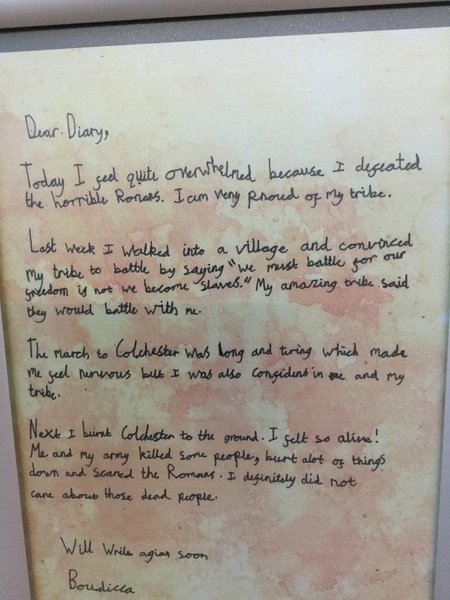 Dear Diary,
Today I feel quite overwhelmed because I defeated
the horrible Romans. I am very proud of my tribe.
Last week I walked into a village and convinced
my tribe to battle by saying "we must battle for our
freedom is not we become slaves." My amazing tribe said
they would battle with me.
The march to Colchester was long and tiring which made
me feel nurvous but I was also confident in me and my
tribe.
Next I burnt Colchester to the ground. I felt so alive!
Me and my army killed some people, burt alot of things
down and scared the Romans. I definitely did not
care about those dead people.
Will write agian soon
Boudicca